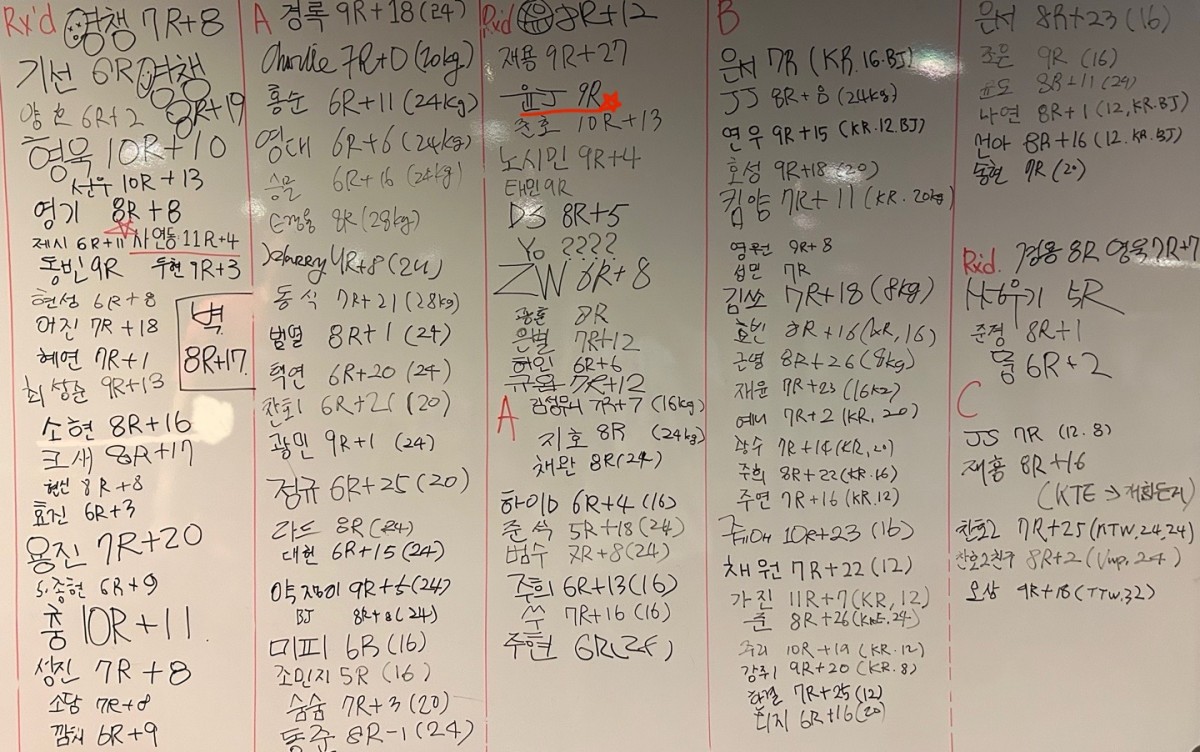 Rx'd 영챙 7R+8
기선 6R 영챙 8R+19
양호 6R+2
형욱 10R+10
상우 10R+13
영기 8R+8
제시 6R+11 사연동 11R+4
동빈 9R 두현 9R+3
현성 6R+8
어진 7R+18
벽 8R+17
혜연 7R+1
최상준 9R+13
소현 8R+16
크새 8R+17
현신 8R+8
효진 6R+3
용진 7R+20
S.종현 6R+9
충 10R+11
성진 7R+8
소담 7R+8
깜시 6R+9
A 경록 9R+18 (24)
Charlie 7R+0 (20kg)
홍순 6R+11 (24kg)
영태 6R+6 (24kg)
승물 6R+16 (24kg)
8R (28kg)
4R+8 (24)
동식 7R+21 (28kg)
범열 8R+1 (24)
택연 6R+20 (24)
찬호1 6R+21 (20)
광민 9R+1 (24)
정규 6R+25 (20)
라드 8R (24)
대현 6R+15 (24)
약쟁이 9R+5 (24)
BJ 8R+8 (24)
미피 6R (16)
조민지 5R (16)
숨숨 7R+3 (20)
동준 8R-1 (24)
Rx'd 8R+12
재용 9R+27
윤J 9R
준호 10R+13
노시민 9R+4
태민 9R
DS 8R+5
Yo ????
ZW 6R+8
광훈 8R
은별 7R+12
허인 6R+6
규용 7R+12
A 7R+7 (16kg)
지호 8R (24kg)
채완 8R (24)
하이D 6R+4 (16)
준석 5R+18 (24)
범수 7R+8 (24)
주희 6R+13 (16)
쑤 7R+16 (16)
주현 6R (24)
B
은서 7R (KR.16.BJ)
JJ 8R+8 (24kg)
연우 9R+15 (KR.12.BJ)
호성 9R+18 (20)
킴양 7R+11 (KR.20kg)
영원 9R+8
섭민 7R
김쏘 7R+18 (8kg)
효빈 8R+16 (KR,16)
근영 8R+26 (8kg)
재운 7R+23 (16k2)
예니 7R+2 (KR,20)
광수 7R+14 (KR,20)
주희 8R+22 (KR.16)
주연 7R+16 (KR.12)
쥬e아 10R+23 (16)
채원 7R+22 (12)
가진 11R+7 (KR,12)
준 8R+26 (KTE.24)
주리 10R+19 (KR.12)
강쥐 9R+20 (KR.8)
한결 7R+25 (12)
디지 6R+16 (20)
은서 8R+23 (16)
조은 9R (16)
윤도 8R+11 (24)
나연 8R+1 (12,KR.BJ)
선아 8R+16 (12.KR.BJ)
동현 7R (20)
Rx'd. 경용 8R 영욱 7R+7
5R
준경 8R+1
뭉 6R+2
C
JS 7R (12.8)
재홍 8R+16
(KTE →
찬호2 7R+25 (KTW,24,24)
찬호2친구 8R+2 (24)
오상 9R+18 (TTW,32)